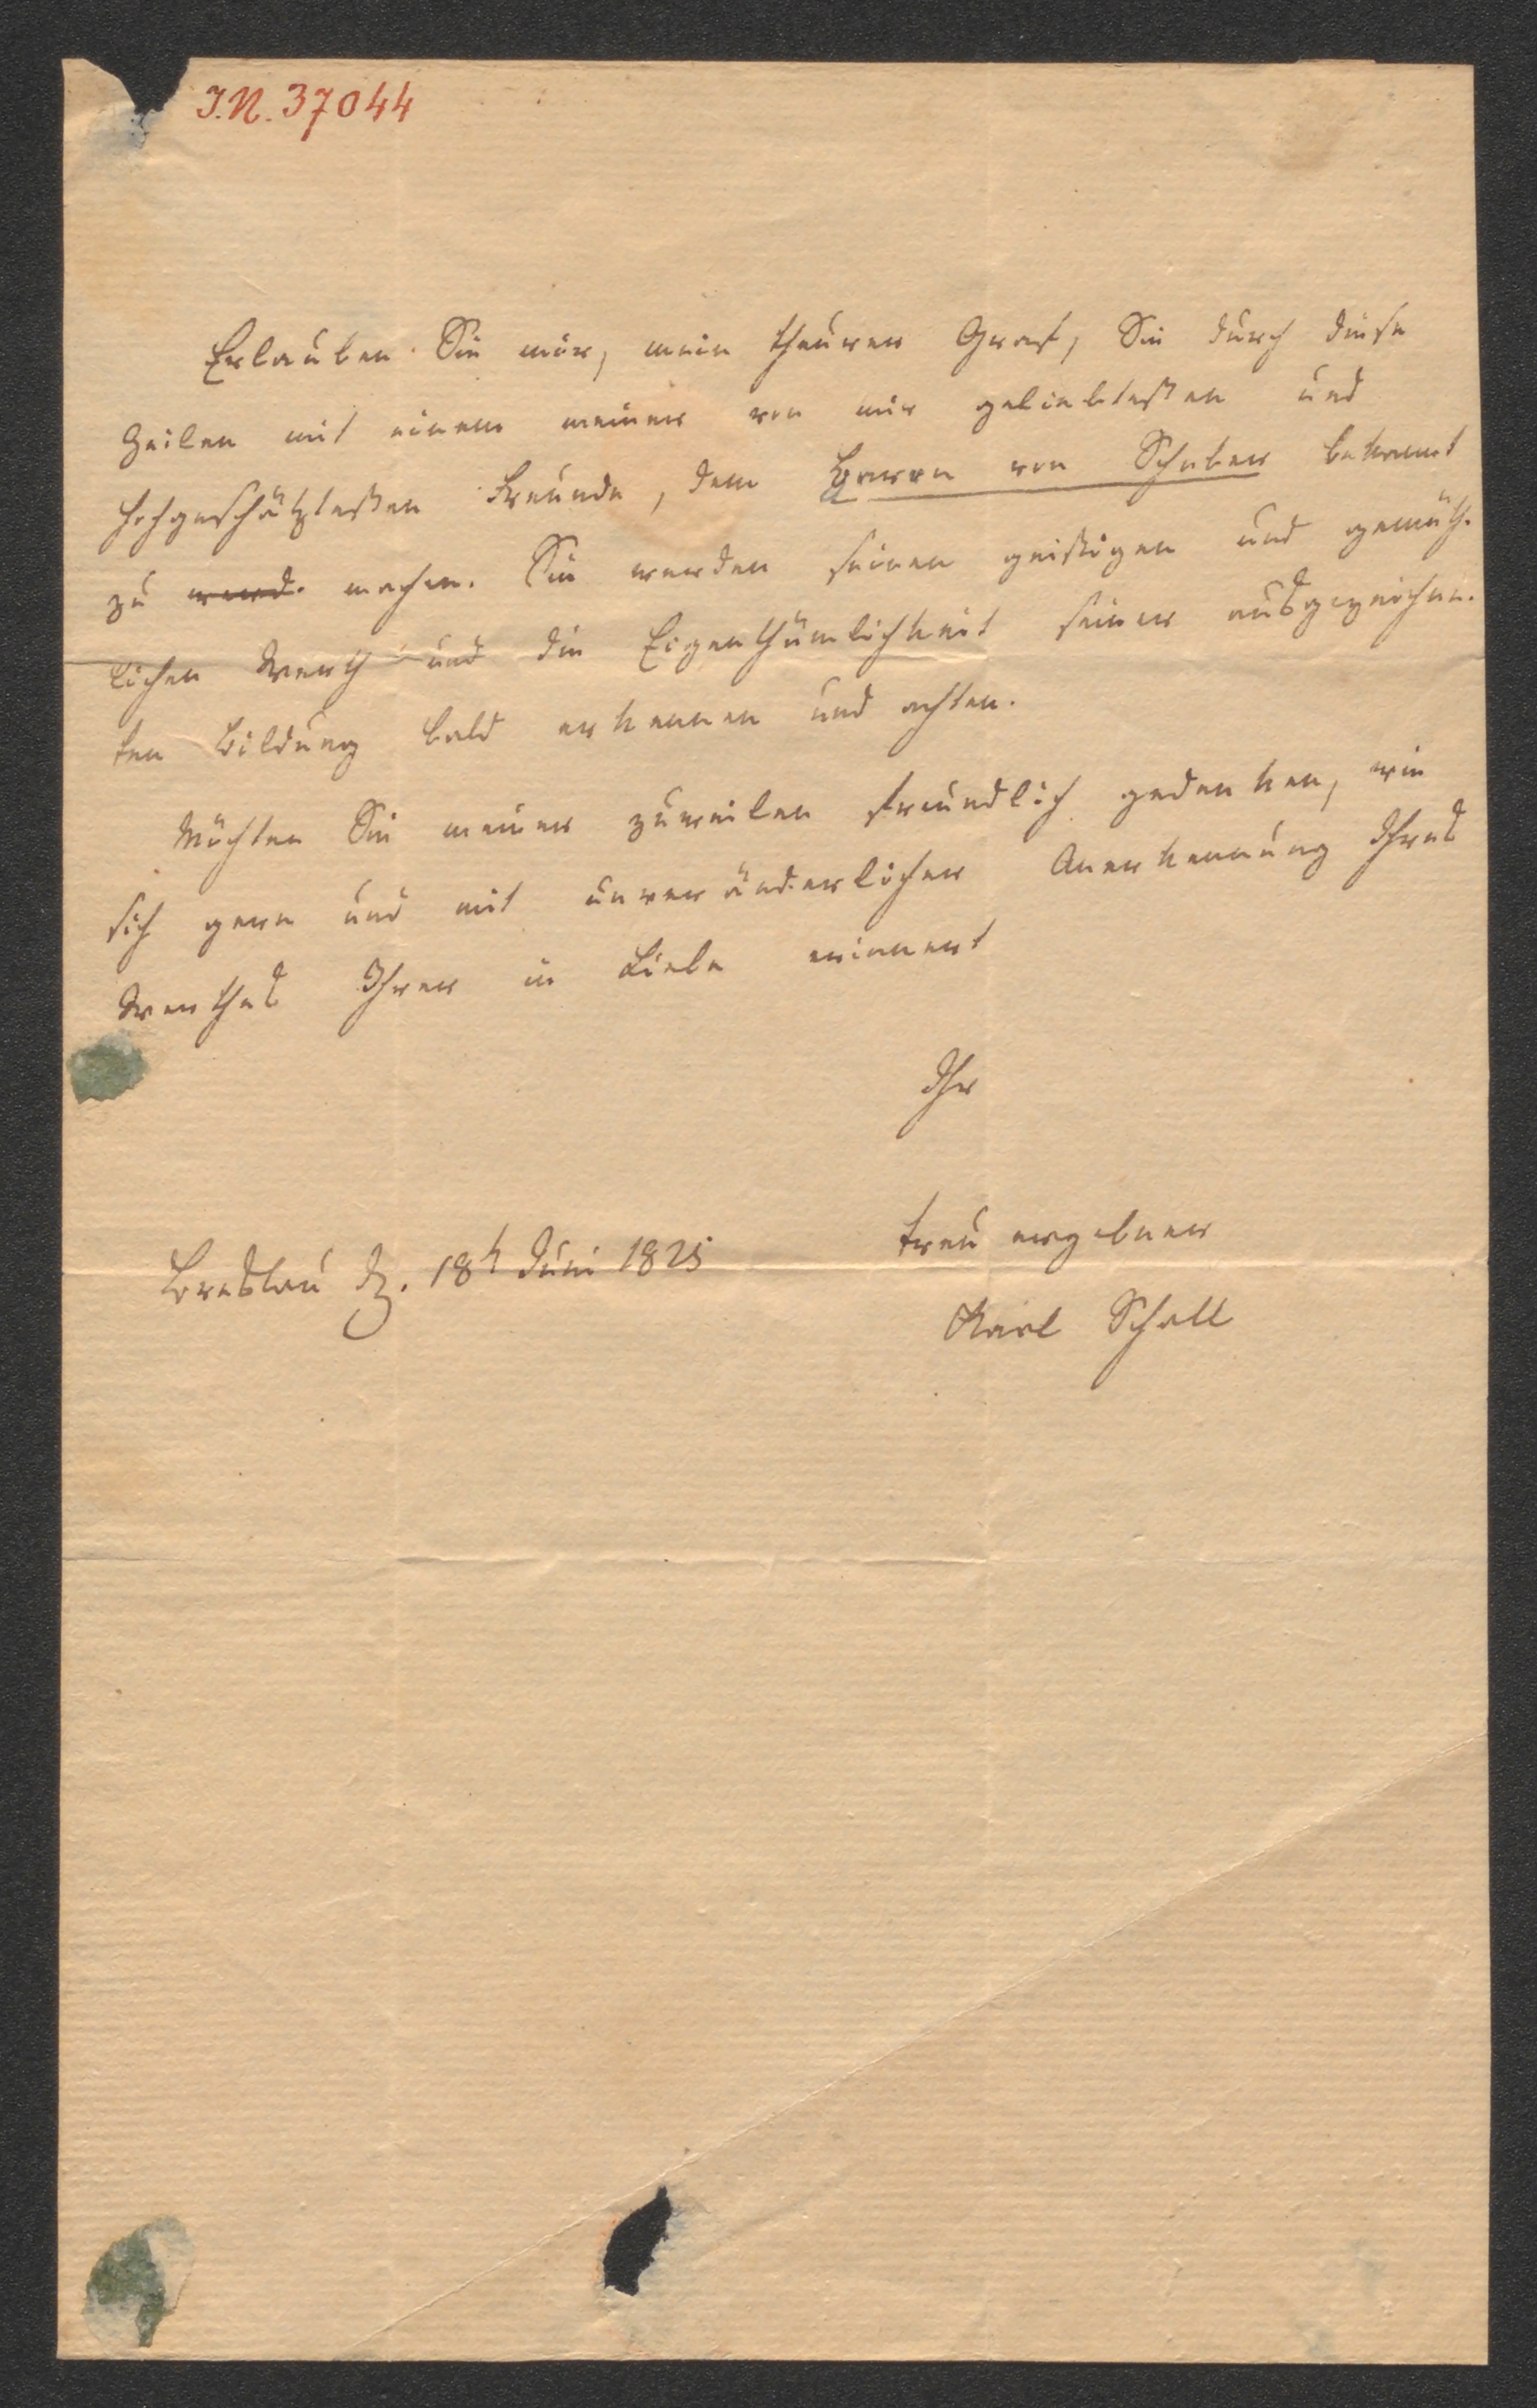 I.N. 37044
Erlauben Sie mir, mein theurer Graf, Sie durch diese
Zeilen mit einem meiner von mir geliebtesten und
hochgeschätztesten Freunde, dem Herrn von Schober bekannt
zu machen. Sie werden seinen geistigen und gemüth-
lichen Werth und die Eigenthümlichkeit seiner ausgezeichne-
ten Bildung bald erkennen und achten.
Möchten Sie meiner zuweilen freundlich gedenken, wie
sich gern und mit unveränderlicher Anerkennung Ihres
Werthes Ihrer in Liebe erinnert
Ihr
treu ergebner
Breslau dz. 18t Juni 1825
Karl Schall